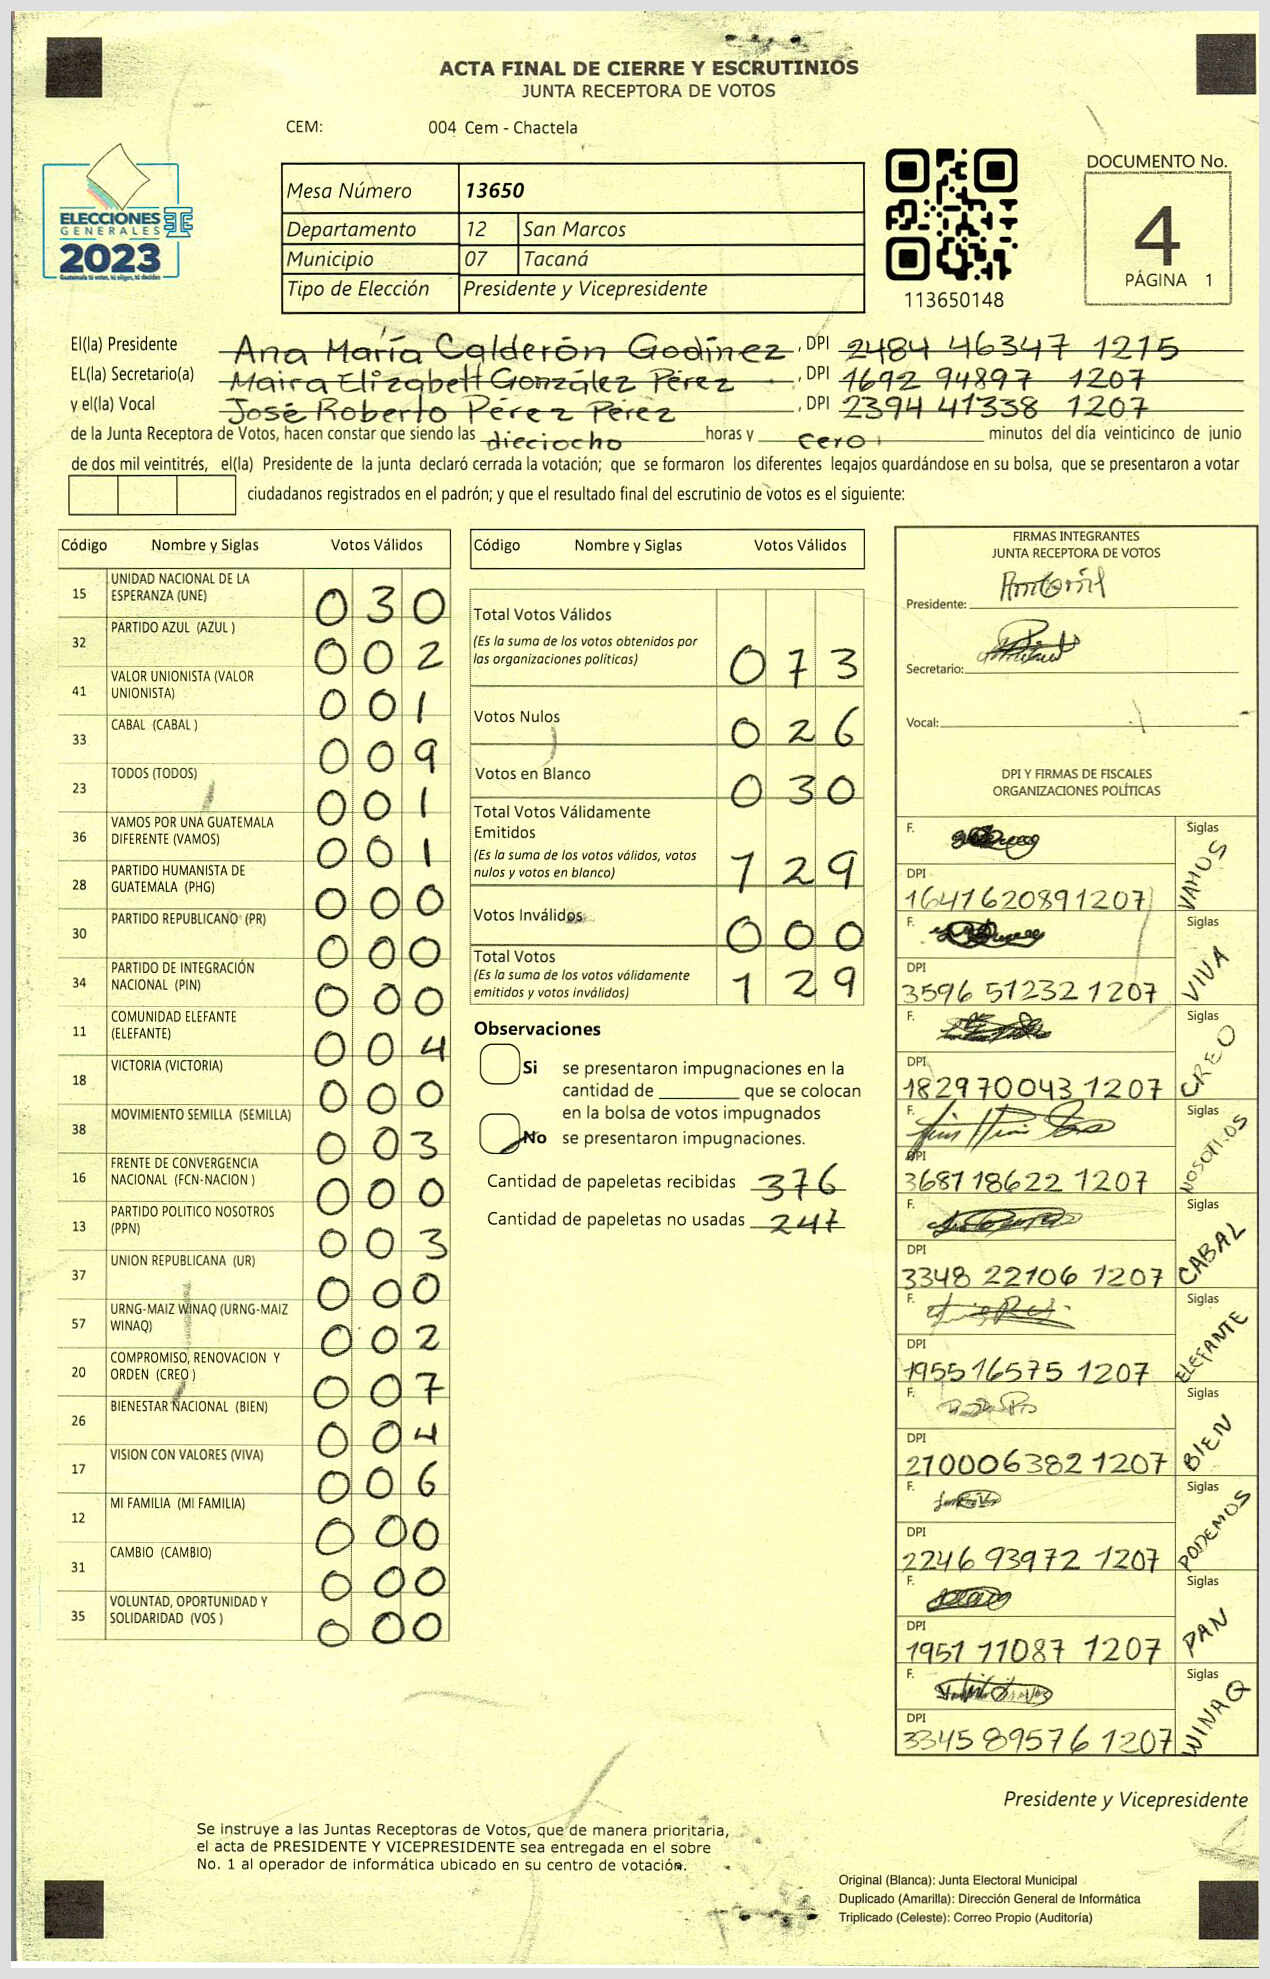 ACTA FINAL DE CIERRE Y ESCRUTINIOS
JUNTA RECEPTORA DE VOTOS
CEM: 004 Cem - Chactela
ELECCIONES
GENERALES
2023
Guatemala tú votas, tú eliges, tú decides
Mesa Número 13650
Departamento 12 San Marcos
Municipio 07 Tacaná
Tipo de Elección Presidente y Vicepresidente
113650148
DOCUMENTO No.
4
PÁGINA 1
El(la) Presidente Ana María Calderón Godínez, DPI 2484 46347 1215
EL(la) Secretario(a) Maira Elizabett González Pérez, DPI 1692 94897 1207
y el(la) Vocal José Roberto Pérez Pérez, DPI 2394 41338 1207
de la Junta Receptora de Votos, hacen constar que siendo las dieciocho horas y cero minutos del día veinticinco de junio
de dos mil veintitrés, el(la) Presidente de la junta declaró cerrada la votación; que se formaron los diferentes legajos guardándose en su bolsa, que se presentaron a votar
ciudadanos registrados en el padrón; y que el resultado final del escrutinio de votos es el siguiente:
Código Nombre y Siglas Votos Válidos
15 UNIDAD NACIONAL DE LA ESPERANZA (UNE) 030
32 PARTIDO AZUL (AZUL ) 002
41 VALOR UNIONISTA (VALOR UNIONISTA) 001
33 CABAL (CABAL ) 009
23 TODOS (TODOS) 001
36 VAMOS POR UNA GUATEMALA DIFERENTE (VAMOS) 001
28 PARTIDO HUMANISTA DE GUATEMALA (PHG) 000
30 PARTIDO REPUBLICANO (PR) 000
34 PARTIDO DE INTEGRACIÓN NACIONAL (PIN) 000
11 COMUNIDAD ELEFANTE (ELEFANTE) 004
18 VICTORIA (VICTORIA) 000
38 MOVIMIENTO SEMILLA (SEMILLA) 003
16 FRENTE DE CONVERGENCIA NACIONAL (FCN-NACION ) 000
13 PARTIDO POLITICO NOSOTROS (PPN) 003
37 UNION REPUBLICANA (UR) 000
57 URNG-MAIZ WINAQ (URNG-MAIZ WINAQ) 002
20 COMPROMISO, RENOVACION Y ORDEN (CREO ) 007
26 BIENESTAR NACIONAL (BIEN) 004
17 VISION CON VALORES (VIVA) 006
12 MI FAMILIA (MI FAMILIA) 000
31 CAMBIO (CAMBIO) 000
35 VOLUNTAD, OPORTUNIDAD Y SOLIDARIDAD (VOS ) 000
Código Nombre y Siglas Votos Válidos
Total Votos Válidos
(Es la suma de los votos obtenidos por
las organizaciones políticas) 073
Votos Nulos 026
Votos en Blanco 030
Total Votos Válidamente
Emitidos
(Es la suma de los votos válidos, votos
nulos y votos en blanco) 129
Votos Inválidos 000
Total Votos
(Es la suma de los votos válidamente
emitidos y votos inválidos) 129
Observaciones
Si se presentaron impugnaciones en la
cantidad de ________ que se colocan
en la bolsa de votos impugnados
No se presentaron impugnaciones.
Cantidad de papeletas recibidas 376
Cantidad de papeletas no usadas 247
FIRMAS INTEGRANTES
JUNTA RECEPTORA DE VOTOS
Presidente:
Secretario:
Vocal:
DPI Y FIRMAS DE FISCALES
ORGANIZACIONES POLÍTICAS
F. Siglas VAMOS
DPI
1641620891207
F. Siglas VIVA
DPI
3596 51232 1207
F. Siglas CREO
DPI
182970043 1207
F. Siglas NOSOTROS
DPI
3681 18622 1207
F. Siglas CABAL
DPI
3348 22106 1207
F. Siglas ELEFANTE
DPI
1955 16575 1207
F. Siglas BIEN
DPI
210006382 1207
F. Siglas PODEMOS
DPI
2246 93972 1207
F. Siglas PAN
DPI
1951 11087 1207
F. Siglas WINAQ
DPI
3345 89576 1207
Presidente y Vicepresidente
Se instruye a las Juntas Receptoras de Votos, que de manera prioritaria,
el acta de PRESIDENTE Y VICEPRESIDENTE sea entregada en el sobre
No. 1 al operador de informática ubicado en su centro de votación.
Original (Blanca): Junta Electoral Municipal
Duplicado (Amarilla): Dirección General de Informática
Triplicado (Celeste): Correo Propio (Auditoría)